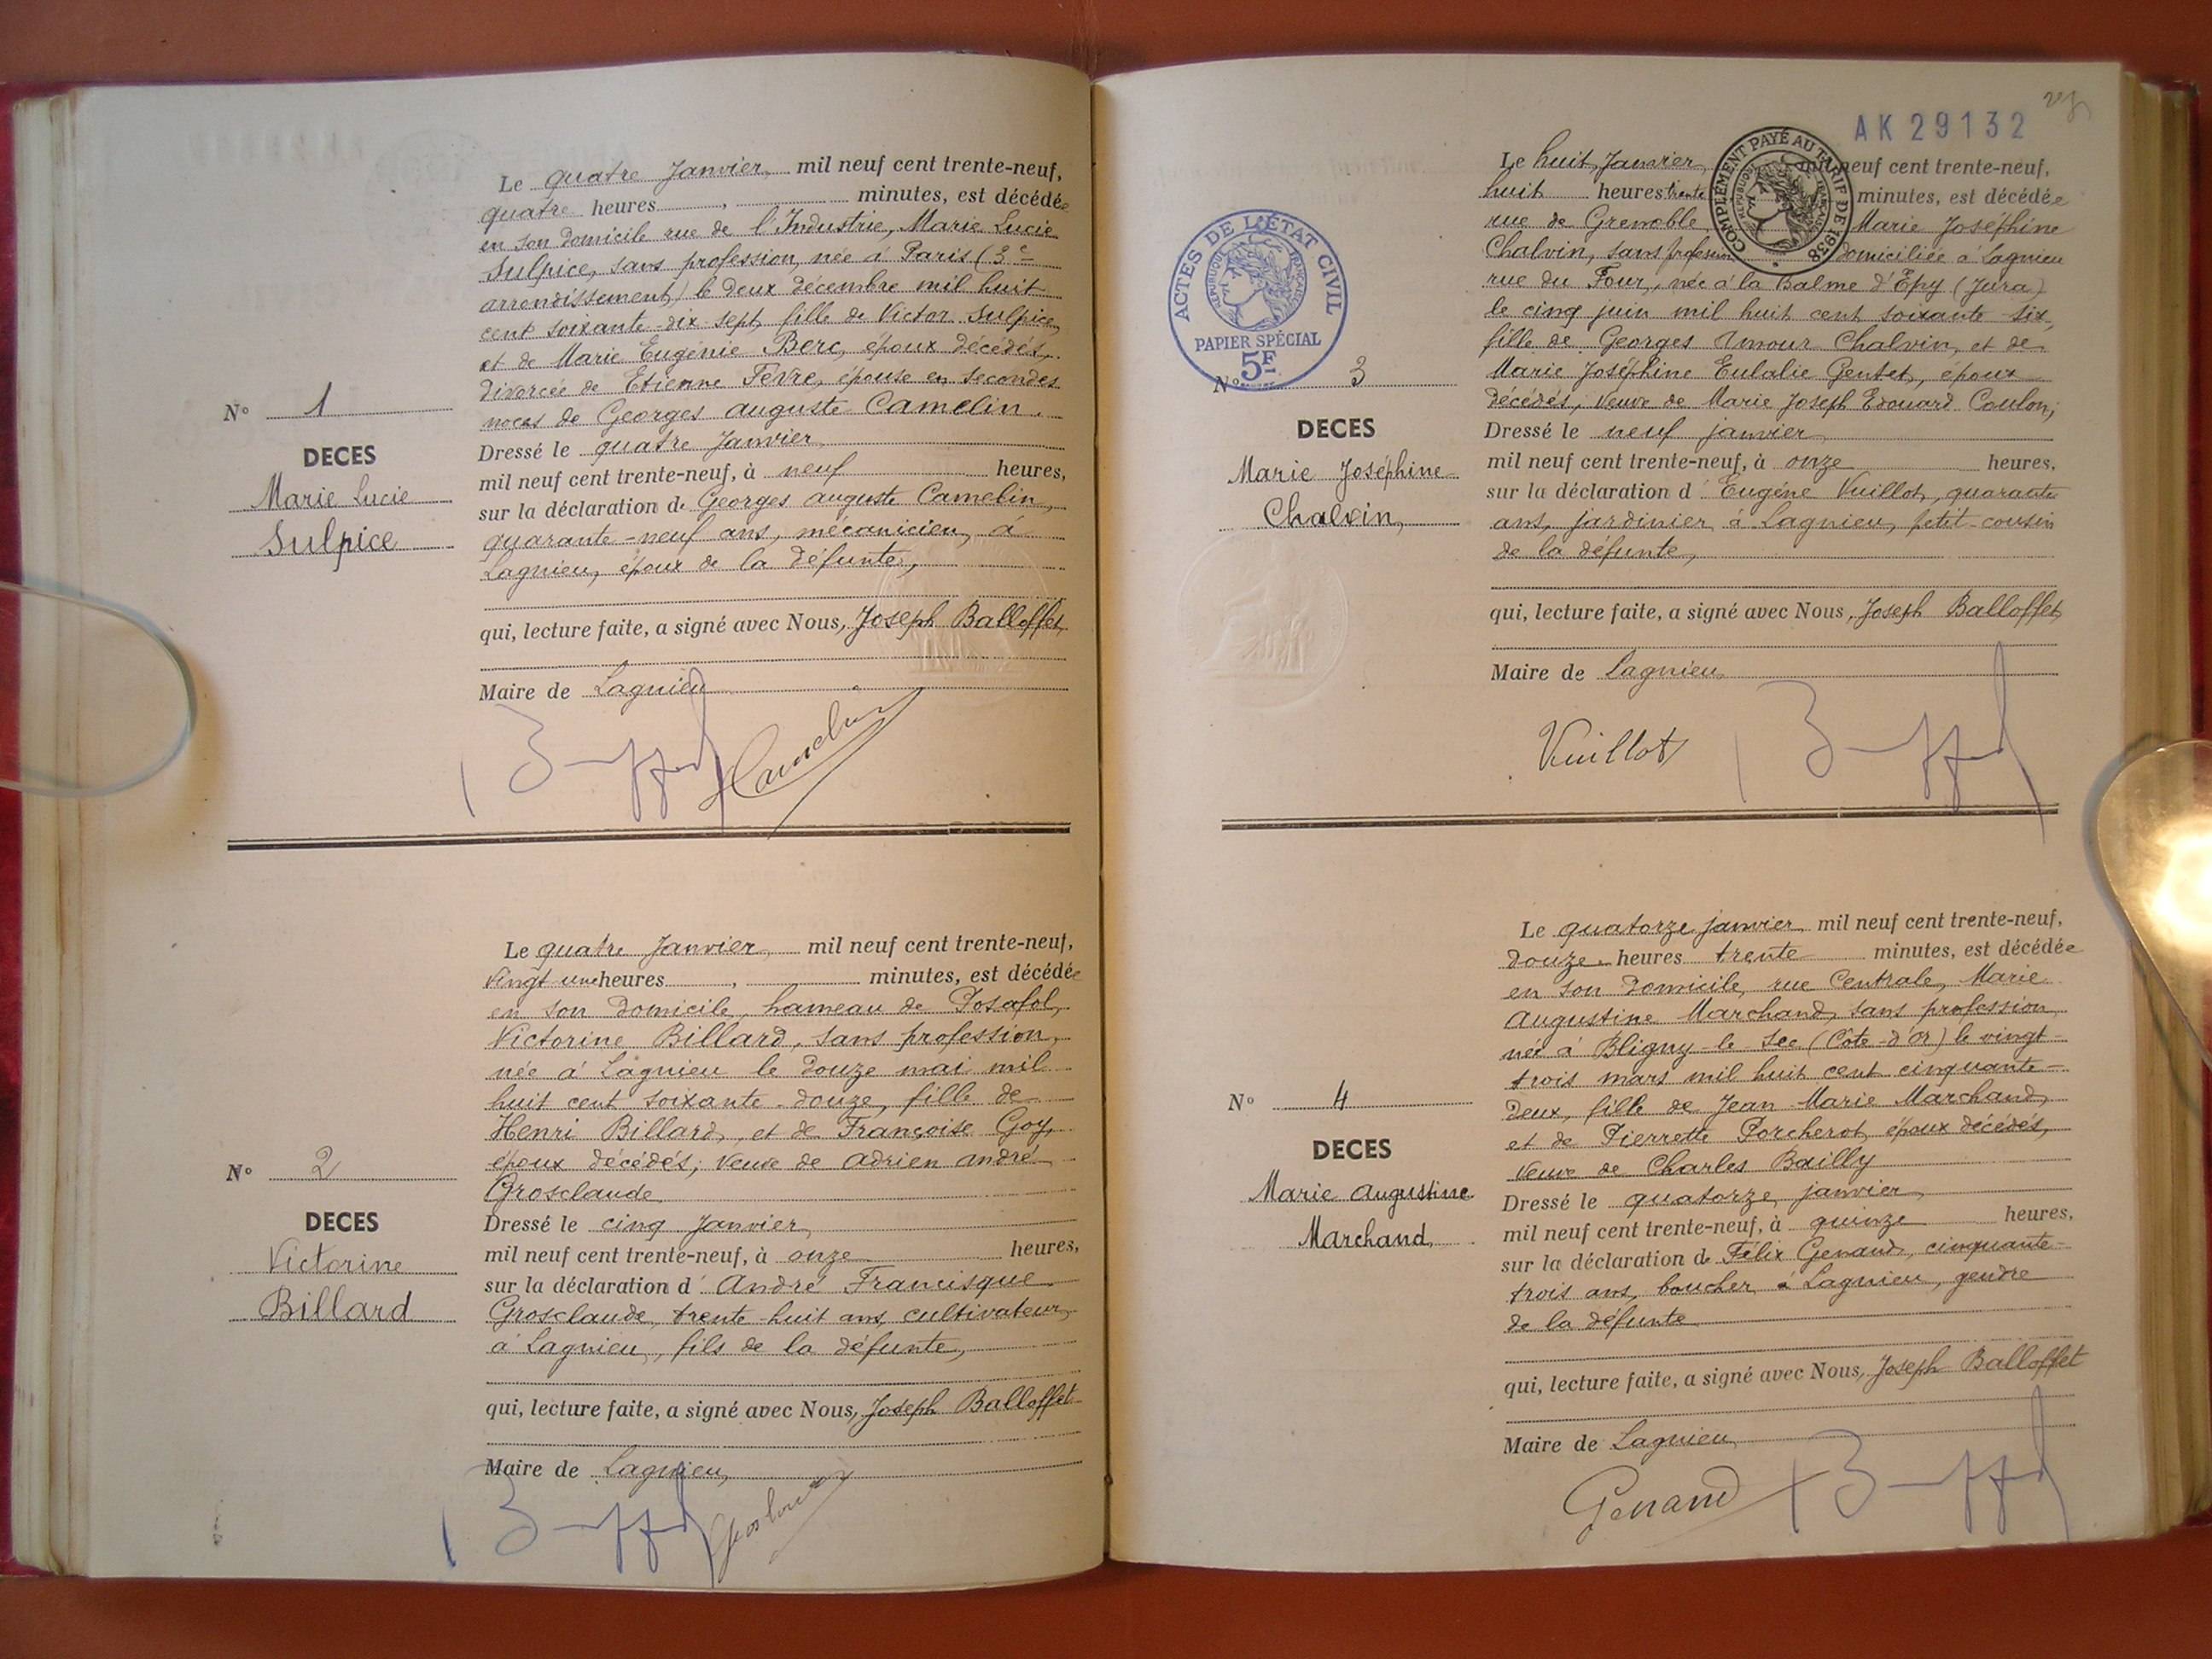 Le quatre Janvier, mil neuf cent trente-neuf,
quatre heures , minutes, est décédée
en son domicile rue de l'Industrie, Marie Lucie
Sulpice, sans profession, née à Paris (3e
arrondissement) le deux décembre mil huit
cent soixante-dix-sept, fille de Victor Sulpice,
et de Marie Eugénie Berc, époux décédés,
divorcée de Etienne Fèvre, épouse en secondes
noces de Georges Auguste Camelin.
Nº 1
DECES
Marie Lucie
Sulpice
Dressé le quatre Janvier,
mil neuf cent trente-neuf, à neuf heures,
sur la déclaration de Georges Auguste Camelin,
quarante-neuf ans, mécanicien, à
Lagnieu, époux de la défunte,
qui, lecture faite, a signé avec Nous, Joseph Balloffet,
Maire de Lagnieu
Camelin
Le quatre Janvier, mil neuf cent trente-neuf,
vingt une heures , minutes, est décédée
en son domicile, hameau de Posafol,
Victorine Billard, sans profession,
née à Lagnieu le douze mai mil
huit cent soixante-douze, fille de
Henri Billard, et de Françoise Goy,
époux décédés; veuve de Adrien André
Grosclaude
Nº 2
DECES
Victorine
Billard
Dressé le cinq Janvier,
mil neuf cent trente-neuf, à onze heures,
sur la déclaration d' André Francisque
Grosclaude, trente-huit ans, cultivateur,
à Lagnieu, fils de la défunte,
qui, lecture faite, a signé avec Nous, Joseph Balloffet
Maire de Lagnieu,
AK 29132
COMPLÉMENT PAYÉ AU TARIF DE 1938
RÉPUBLIQUE FRANÇAISE
ACTES DE L'ÉTAT CIVIL
RÉPUBLIQUE FRANÇAISE
PAPIER SPÉCIAL
5F
Le huit Janvier, mil neuf cent trente-neuf,
huit heures trente minutes, est décédée
rue de Grenoble Marie Joséphine
Chalvin, sans profession domiciliée à Lagnieu
rue du Four, née à la Balme d'Epy (Jura)
le cinq juin mil huit cent soixante-six,
fille de Georges Amour Chalvin, et de
Marie Joséphine Eulalie Gentet, époux
décédés; veuve de Marie Joseph Edouard Coulon;
Nº 3
DECES
Marie Joséphine
Chalvin,
Dressé le neuf janvier,
mil neuf cent trente-neuf, à onze heures,
sur la déclaration d' Eugène Vuillot, quarante
ans, jardinier à Lagnieu, petit-cousin
de la défunte,
qui, lecture faite, a signé avec Nous, Joseph Balloffet,
Maire de Lagnieu,
Vuillot
Le quatorze janvier, mil neuf cent trente-neuf,
douze heures trente minutes, est décédée
en son domicile, rue Centrale, Marie
Augustine Marchand, sans profession,
née à Bligny-le-Sec (Côte-d'Or) le vingt-
trois mars mil huit cent cinquante-
deux, fille de Jean Marie Marchand,
et de Pierrette Porcherot, époux décédés,
veuve de Charles Bailly
Nº 4
DECES
Marie Augustine
Marchand,
Dressé le quatorze janvier,
mil neuf cent trente-neuf, à quinze heures,
sur la déclaration de Félix Genaud, cinquante-
trois ans, boucher à Lagnieu, gendre
de la défunte
qui, lecture faite, a signé avec Nous, Joseph Balloffet
Maire de Lagnieu,
Genaud